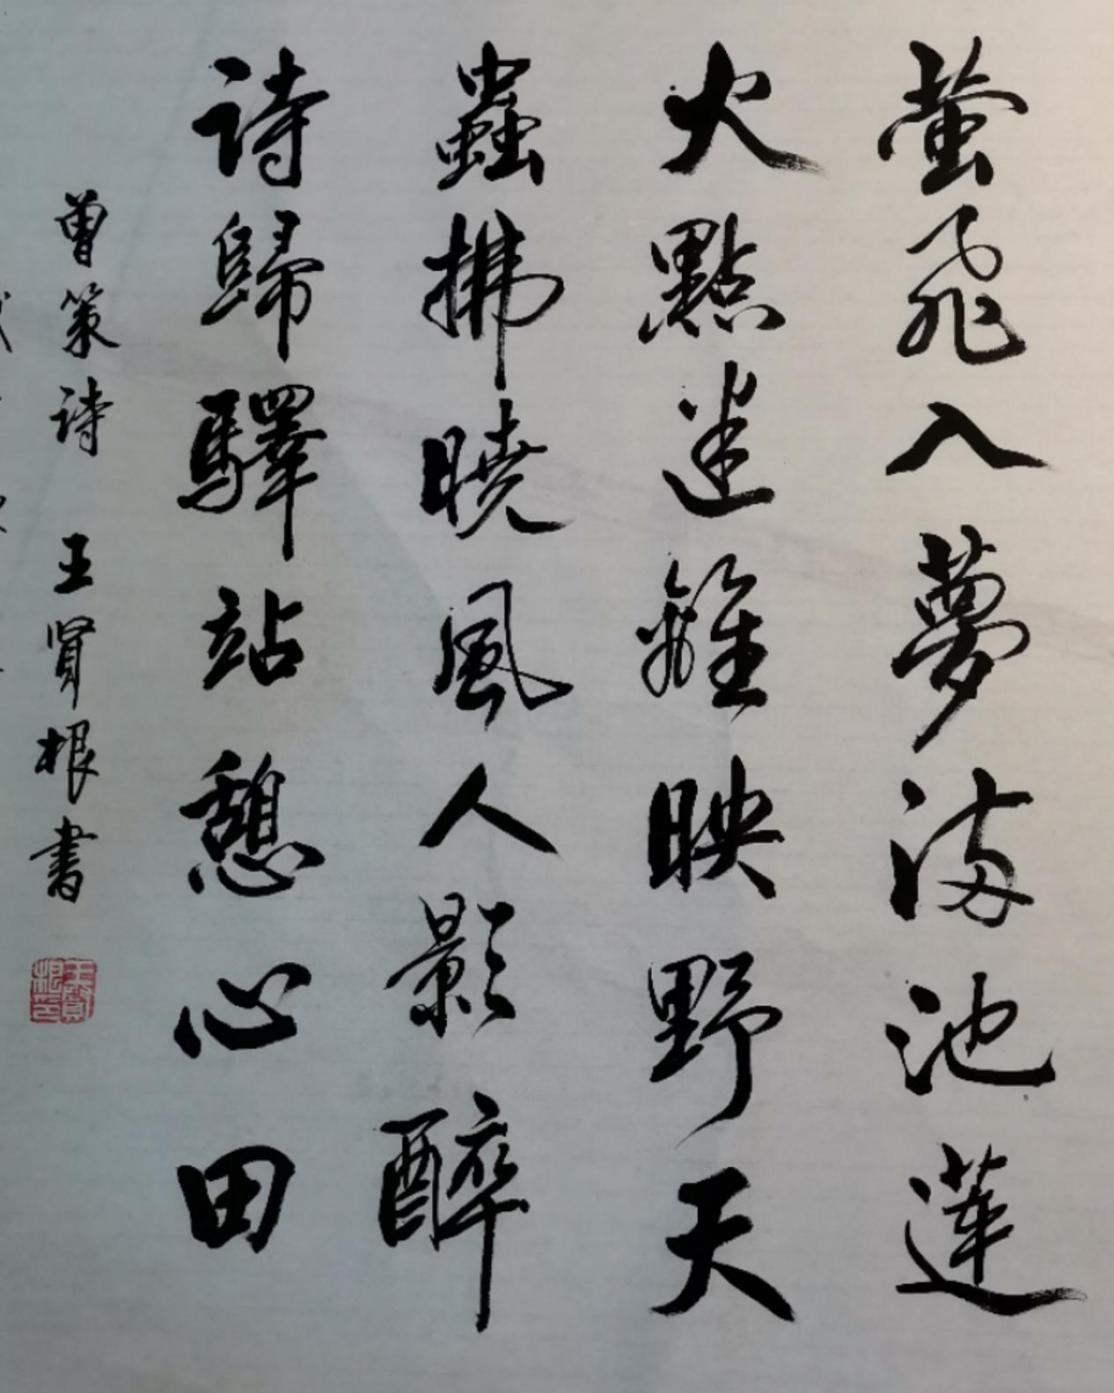 萤飛入夢满池蓮
火點迷離映野天
蟲拂曉風人影醉
詩歸驛站憩心田
曾策诗 王贤根书